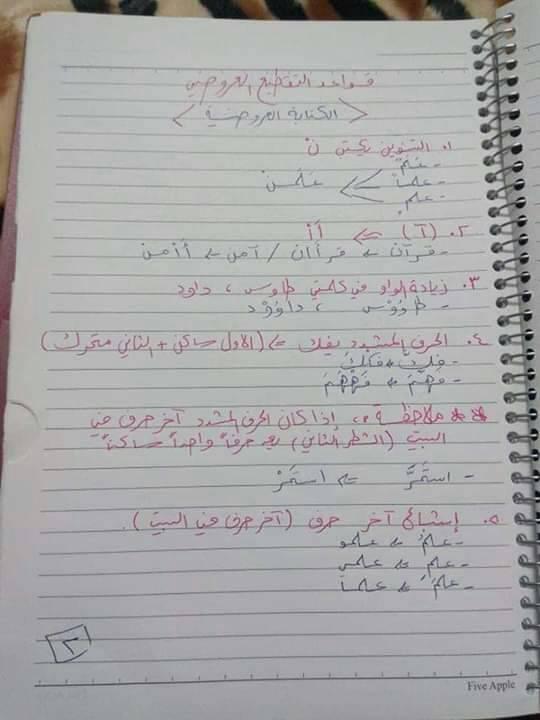 قواعد التقطيع العروضي
< الكتابة العروضية >
١. التنوين يكتب نْ
- علمٌ
- علماً => عَلَمَنْ
- علمٍ
٢. (آ) => أَاْ
- قرآن => قرأان / آمن => أامن
٣. زيادة الواو في كلمتي طاوس ، داود
- طاوُوْس ، داوُوْد
٤. الحرف المشدد يفك => (الأول ساكن + الثاني متحرك)
- فكَّ => فَكْكَ
- فَهَّمَ => فَهْهَمَ
** ملاحظة ،، إذا كان الحرف المشدد آخر حرف في
البيت (الشطر الثاني) يعد حرفاً واحداً ساكناً
- استمَرَّ => استمَرْ
٥. إشباع آخر حرف (آخر حرف في البيت).
- علمُ => علمو
- علمِ => علمي
- علمَ => علما
٢
Five Apple